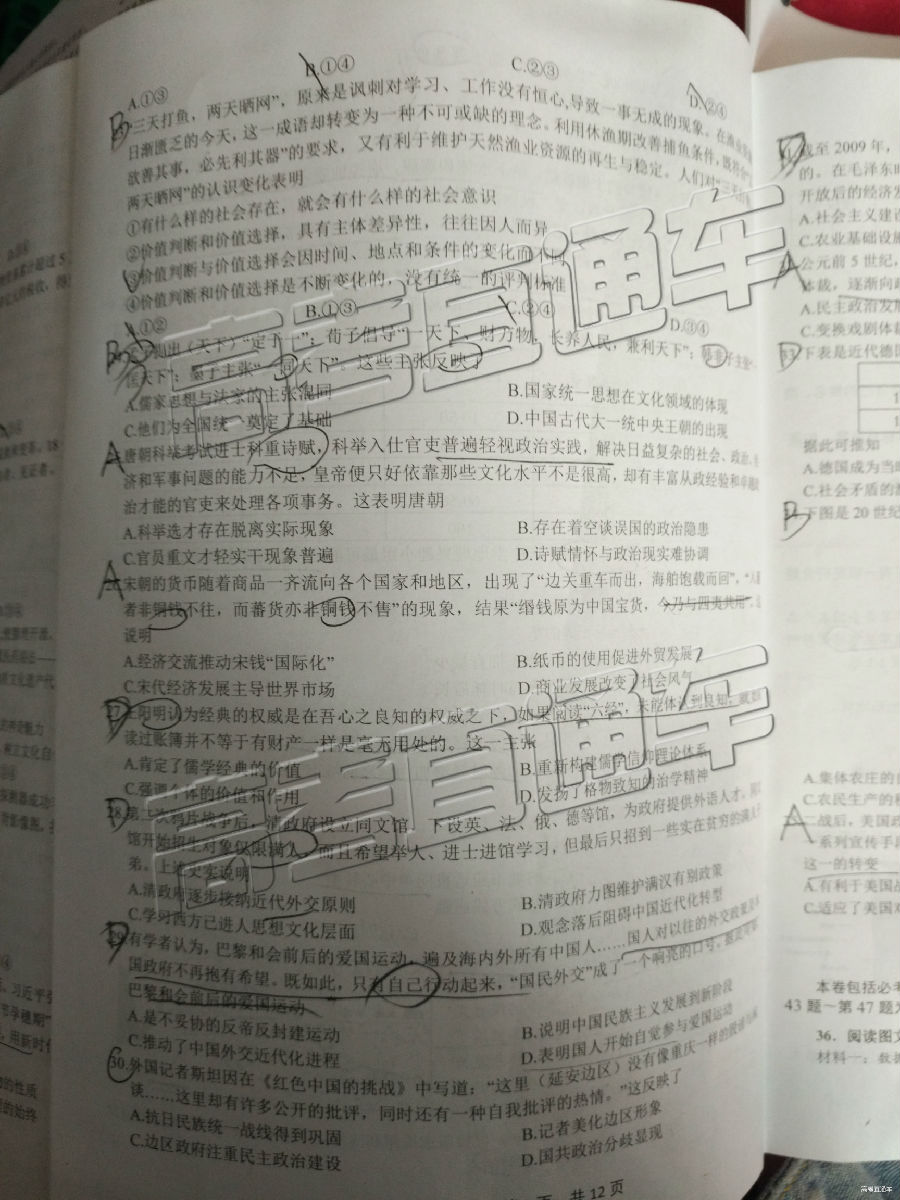 A.①③
B.①④
C.②③
D.②④
B
“三天打鱼，两天晒网”，原来是讽刺对学习、工作没有恒心,导致一事无成的现象。在渔业资
日渐匮乏的今天，这一成语却转变为一种不可或缺的理念。利用休渔期改善捕鱼条件,既符合“
欲善其事，必先利其器”的要求，又有利于维护天然渔业资源的再生与稳定。人们对“三天打鱼
两天晒网”的认识变化表明
①有什么样的社会存在，就会有什么样的社会意识
②价值判断和价值选择，具有主体差异性，往往因人而异
③价值判断与价值选择会因时间、地点和条件的变化而不同
④价值判断和价值选择是不断变化的，没有统一的评判标准
A.①②
B.①③
C.②④
D.③④
B
（天下）“定于一”；荀子倡导“一天下，财万物，长养人民，兼利天下”；韩非子主张“一
匡天下”；墨子主张“一同天下”。这些主张反映了
A.儒家思想与法家的主张混同
B.国家统一思想在文化领域的体现
C.他们为全国统一奠定了基础
D.中国古代大一统中央王朝的出现
A
唐朝科举考试进士科重诗赋，科举入仕官吏普遍轻视政治实践，解决日益复杂的社会、政治、
济和军事问题的能力不足，皇帝便只好依靠那些文化水平不是很高，却有丰富从政经验和卓越
治才能的官吏来处理各项事务。这表明唐朝
A.科举选才存在脱离实际现象
B.存在着空谈误国的政治隐患
C.官员重文才轻实干现象普遍
D.诗赋情怀与政治现实难协调
A
宋朝的货币随着商品一齐流向各个国家和地区，出现了“边关重车而出，海舶饱载而回”，“人
者非铜钱不往，而蕃货亦非铜钱不售”的现象，结果“缗钱原为中国宝货，今乃与四夷共用”，
说明
A.经济交流推动宋钱“国际化”
B.纸币的使用促进外贸发展
C.宋代经济发展主导世界市场
D.商业发展改变了社会风气
D
27.王阳明认为经典的权威是在吾心之良知的权威之下，如果阅读“六经”，未能体认到良知，就如
读过账簿并不等于有财产一样是毫无用处的。这一主张
A.肯定了儒学经典的价值
B.重新构建儒学信仰理论体系
C.强调个体的价值和作用
D.发扬了格物致知的治学精神
D
28.第二次鸦片战争后，清政府设立同文馆，下设英、法、俄、德等馆，为政府提供外语人才，同文
馆开始招生对象仅限满人，而且希望举人、进士进馆学习，但最后只招到一些实在贫穷的满人子
弟。上述史实说明
A.清政府逐步接纳近代外交原则
B.清政府力图维护满汉有别政策
C.学习西方已进入思想文化层面
D.观念落后阻碍中国近代化转型
D
29.有学者认为，巴黎和会前后的爱国运动，遍及海内外所有中国人……国人对以往的外交政策及本
国政府不再抱有希望。既如此，只有自己行动起来，“国民外交”成了一个响亮的口号。
巴黎和会前后的爱国运动
A.是不妥协的反帝反封建运动
B.说明中国民族主义发展到新阶段
C.推动了中国外交近代化进程
D.表明国人开始自觉参与爱国运动
30.外国记者斯坦因在《红色中国的挑战》中写道：“这里（延安边区）没有像重庆一样的
谈……这里却有许多公开的批评，同时还有一种自我批评的热情。”这反映了
A.抗日民族统一战线得到巩固
B.记者美化边区形象
C.边区政府注重民主政治建设
D.国共政治分歧显现
页 共 12 页
截至 2009 年，
的。在毛泽东时
开放后的经济发
A.社会主义建设
C.农业基础设施
A
公元前 5 世纪，
体裁，逐渐向
A.民主政治发展
C.变换戏剧体裁
33.下表是近代德国
据此可推知
A.德国成为当时
C.社会矛盾的激
B
下图是 20 世纪
A.集体农庄的
C.农民生产的积
A
二战后，美国政
系列宣传手段
这一的转变
A.有利于美国
C.适应了美国对
本卷包括必考
43 题～第 47 题为
36．阅读图文
材料一：数据
高考直通车
高考直通车
高考直通车